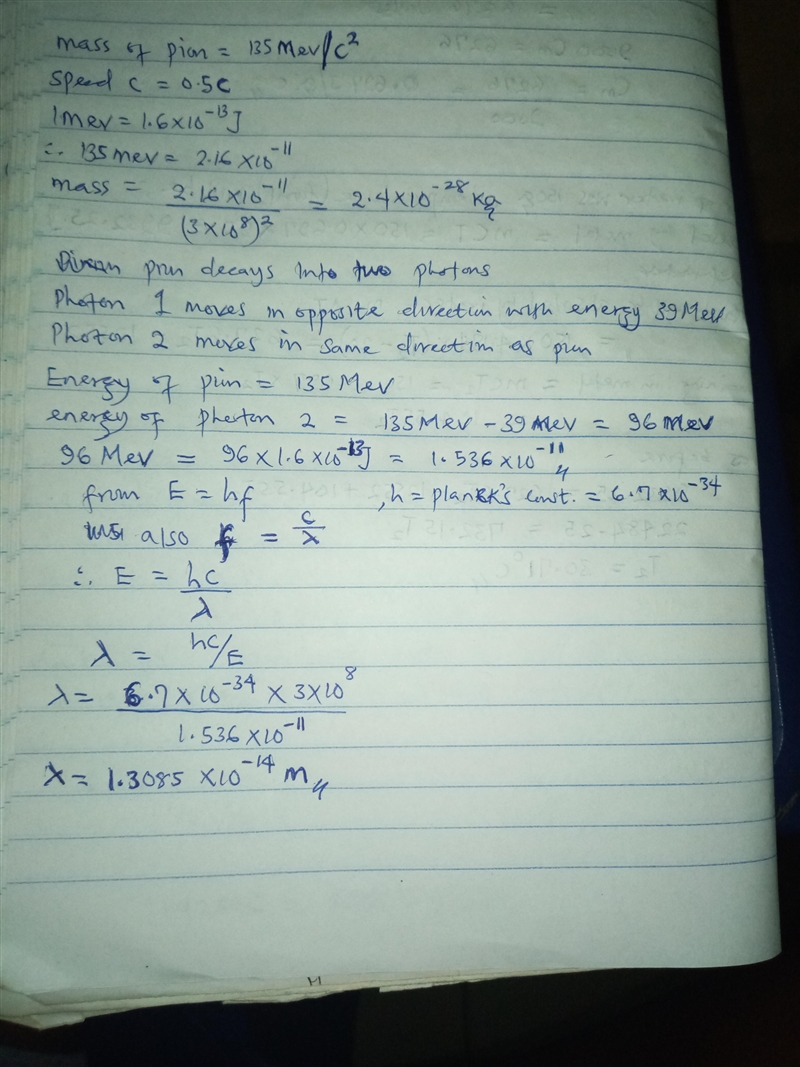 mass of pion = 135 Mev/c²
Speed c = 0.5c
1 mev = 1.6×10⁻¹³J
∴ 135 mev = 2.16 ×10⁻¹¹
mass = 2.16×10⁻¹¹ / (3×10⁸)² = 2.4×10⁻²⁸ Kg
pion decays into two photons
Photon 1 moves in opposite direction with energy 39 Mev
Photon 2 moves in same direction as pion
Energy of pion = 135 Mev
energy of photon 2 = 135 Mev - 39 Mev = 96 mev
96 Mev = 96 × 1.6 ×10⁻¹³J = 1.536 ×10⁻¹¹
from E = hf , h = planck's const. = 6.7 ×10⁻³⁴
also f = c/λ
∴ E = hc/λ
λ = hc/E
λ = 6.7 × 10⁻³⁴ × 3×10⁸ / 1.536 ×10⁻¹¹
λ = 1.3085 ×10⁻¹⁴ m